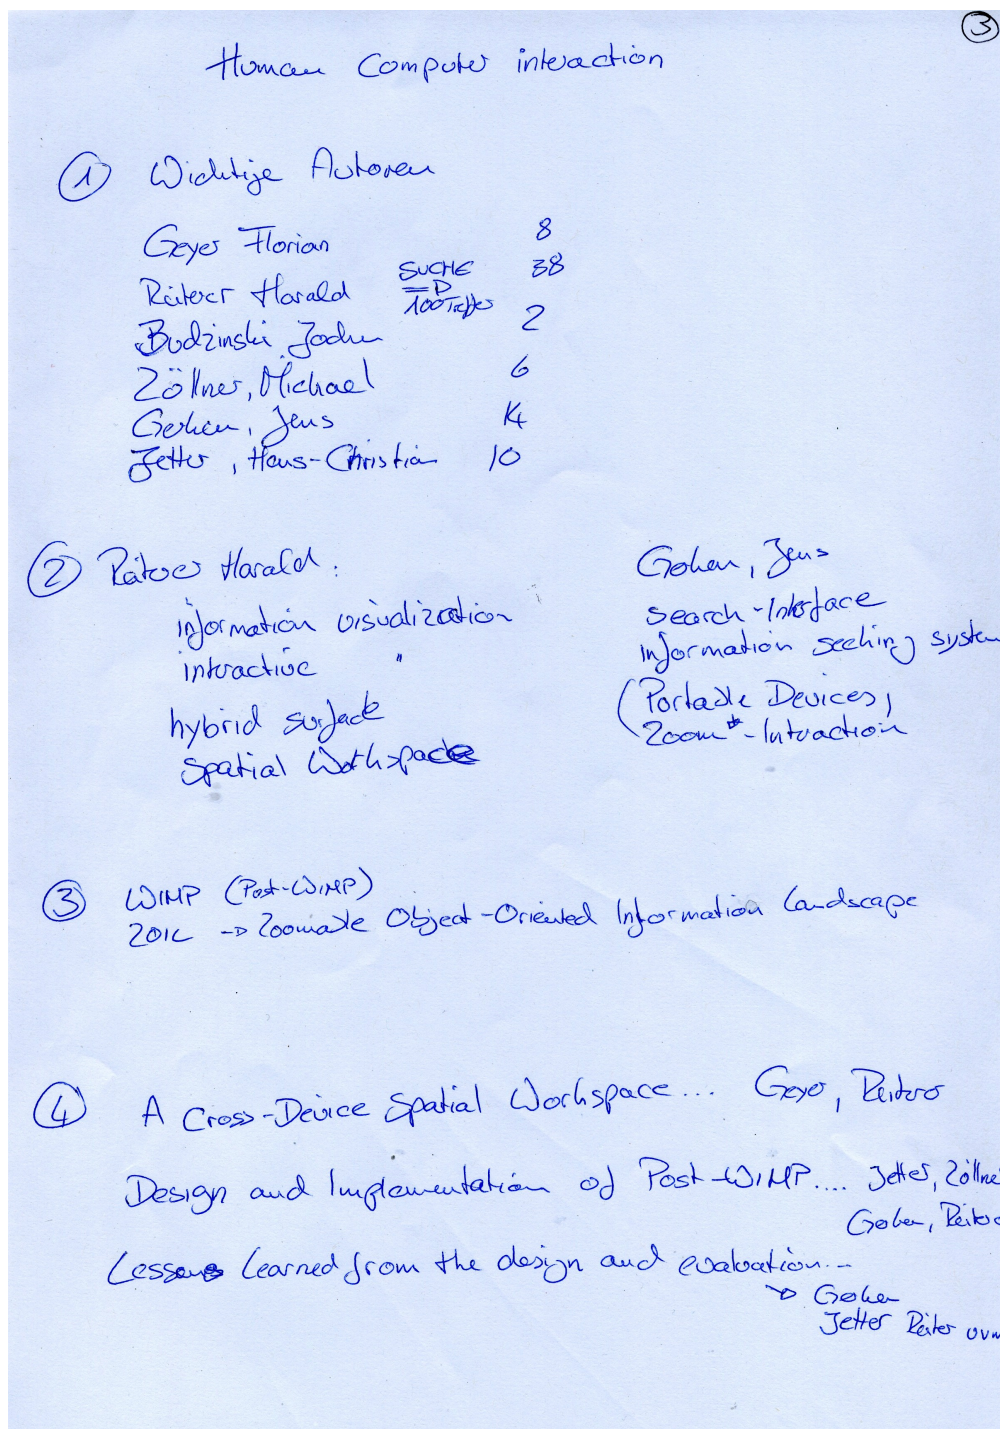 3
Human Computer interaction
1 Wichtige Autoren
Geyer Florian 8
Reiterer Harald SUCHE => 100 Treffer 38
Budzinski Jochen 2
Zöllner, Michael 6
Gerken, Jens 14
Jetter, Hans-Christian 10
2 Reiterer Harald:
information visualization
interactive "
hybrid surface
Spatial Workspace
Gerken, Jens
search-Interface
information seeking system
(Portable Devices,
Zoom-Interaction
3 WIMP (Post-WIMP)
ZOIL -> Zoomable Object-Oriented Information Landscape
4 A Cross-Device Spatial Workspace... Geyer, Reiterer
Design and Implementation of Post-WIMP.... Jetter, Zöllne
Gerken, Reitere
Lessons Learned from the design and evaluation...
-> Gerken
Jetter Reiter uvm